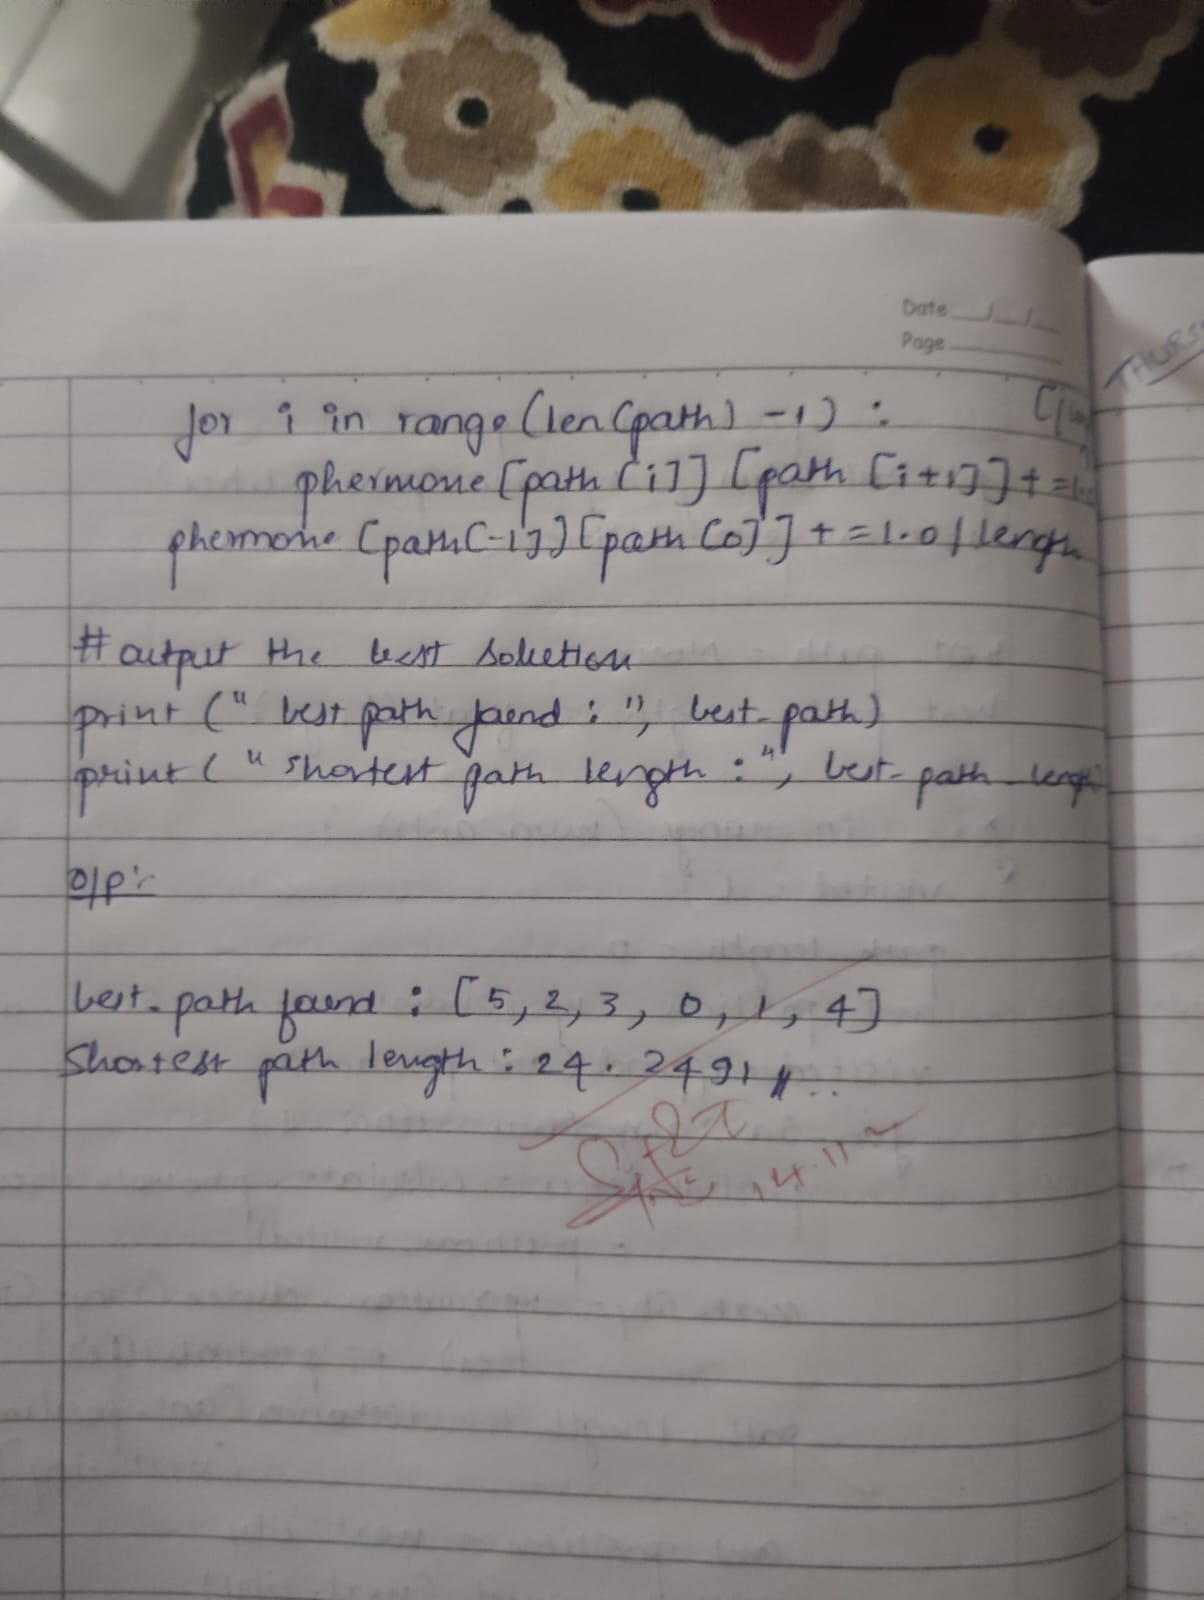 Date
Page
THURS
for i in range (len(path) -1) :
phermone [path [i]] [path [i+1]] + =1.0
phermone [path[-1]] [path [0]] + =1.0 / length
# output the best solution
print (" best path found : ", best_path)
print (" shortest path length : ", best_path_length)
O/P:-
best_path found : [5, 2, 3, 0, 1, 4]
Shortest path length : 24.2491
14.11